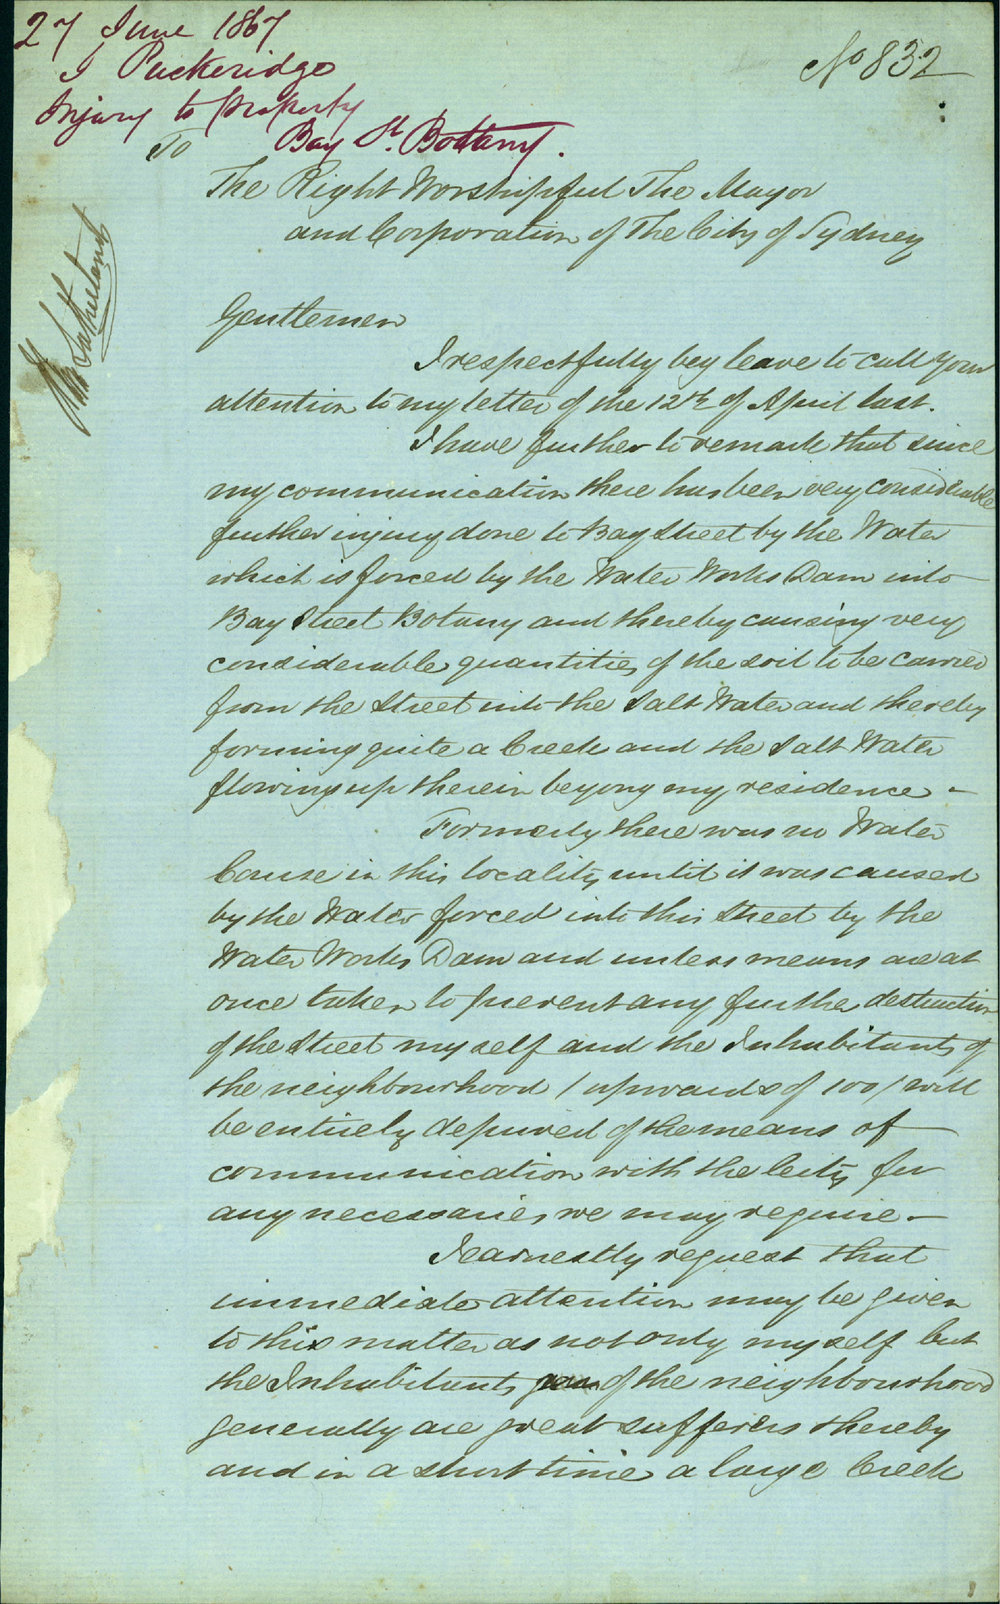 27 June 1867
J Puckeridge
Injury to property
Bay St. Bottany.
No 832
To
The Right Worshipful The Mayor
and Corporation of The City of Sydney
Sutherland
Gentlemen
I respectfully beg leave to call your
attention to my letter of the 12th of April last.
I have further to remark that since
my communication there has been very considerable
further injury done to Bay Street by the Water
which is forced by the Water Works Dam into
Bay Street Botany and thereby causing very
considerable quantities of the soil to be carried
from the Street into the Salt Water and thereby
forming quite a Creek and the Salt Water
flowing up therein beyong my residence -
Formerly there was no Water
Course in this locality until it was caused
by the Water forced into this Street by the
Water Works Dam and unless means are at
once taken to prevent any further destruction
of the Street myself and the Inhabitants of
the neighbourhood / upwards of 100 / will
be entirely deprived of the means of
communication with the City for
any necessaries we may require -
I earnestly request that
immediate attention may be given
to this matter as not only myself but
the Inhabitants of the neighbourhood
generally are great sufferers thereby
and in a short time a large Creek